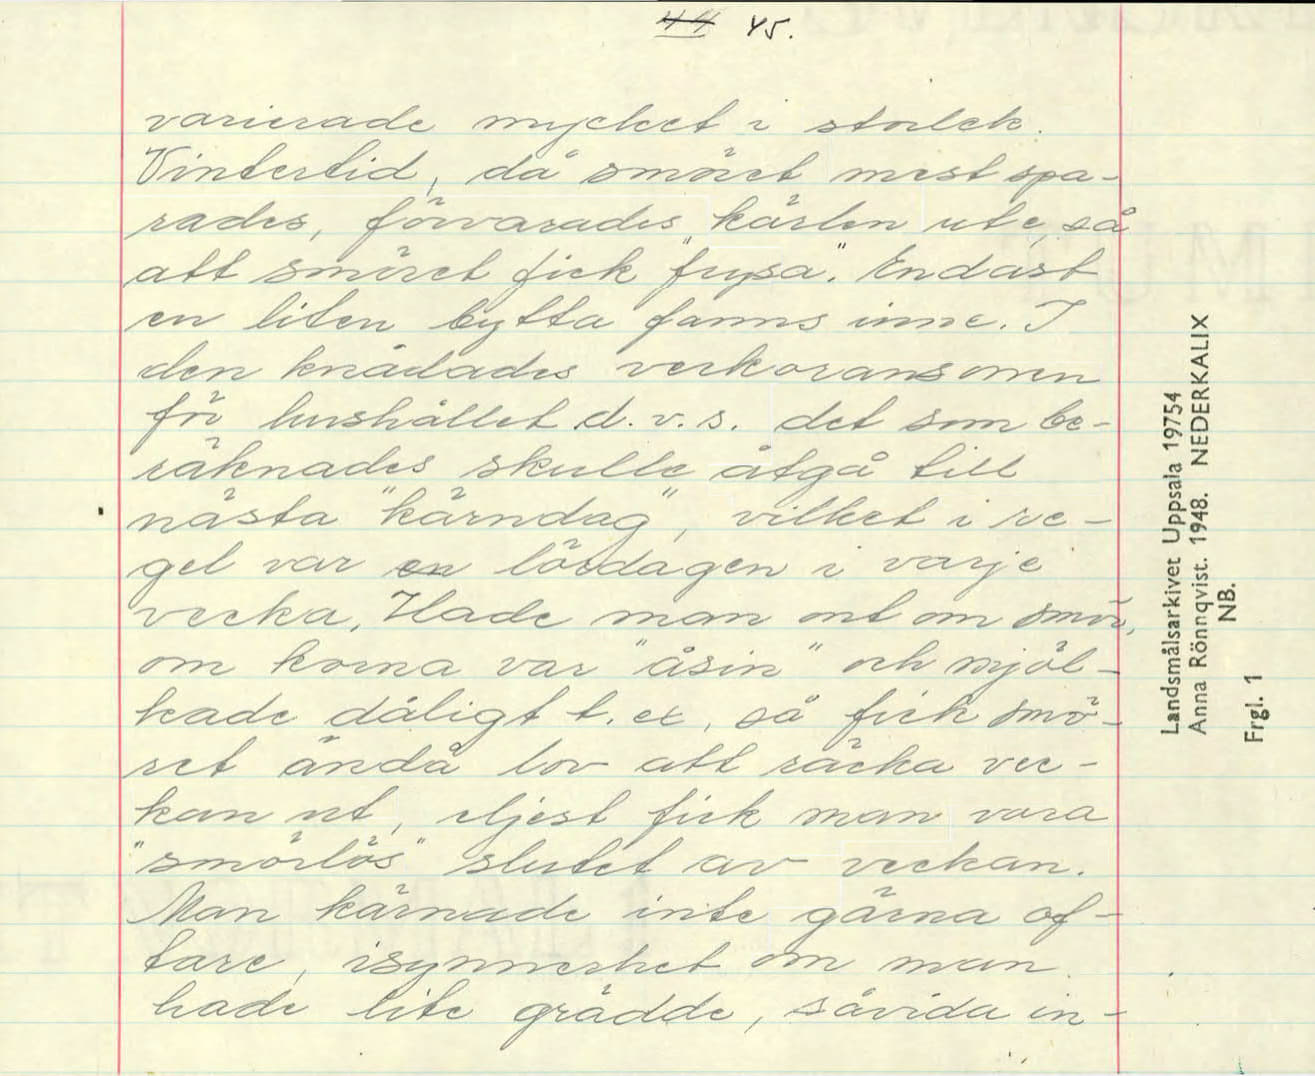 44 45.
varierade mycket i storlek.
Vintertid, då smöret mest spa-
rades, förvarades kärlen ute, så
att smöret fick "frysa". Endast
en liten bytta fanns inne. I
den knådades veckoransonen
för hushållet d.v.s. det som be-
räknades skulle åtgå till
nästa "kärndag", vilket i re-
gel var en lördagen i varje
vecka. Hade man ont om smör,
om korna var "åsin" och mjöl-
kade dåligt t.ex, så fick smö-
ret ändå lov att räcka vec-
kan ut, eljest fick man vara
"smörlös" slutet av veckan.
Man kärnade inte gärna of-
tare, isynnerhet om man
hade lite grädde, såvida in-
Landsmålsarkivet Uppsala 19754
Anna Rönnqvist. 1948. NEDERKALIX
NB.
Frgl. 1